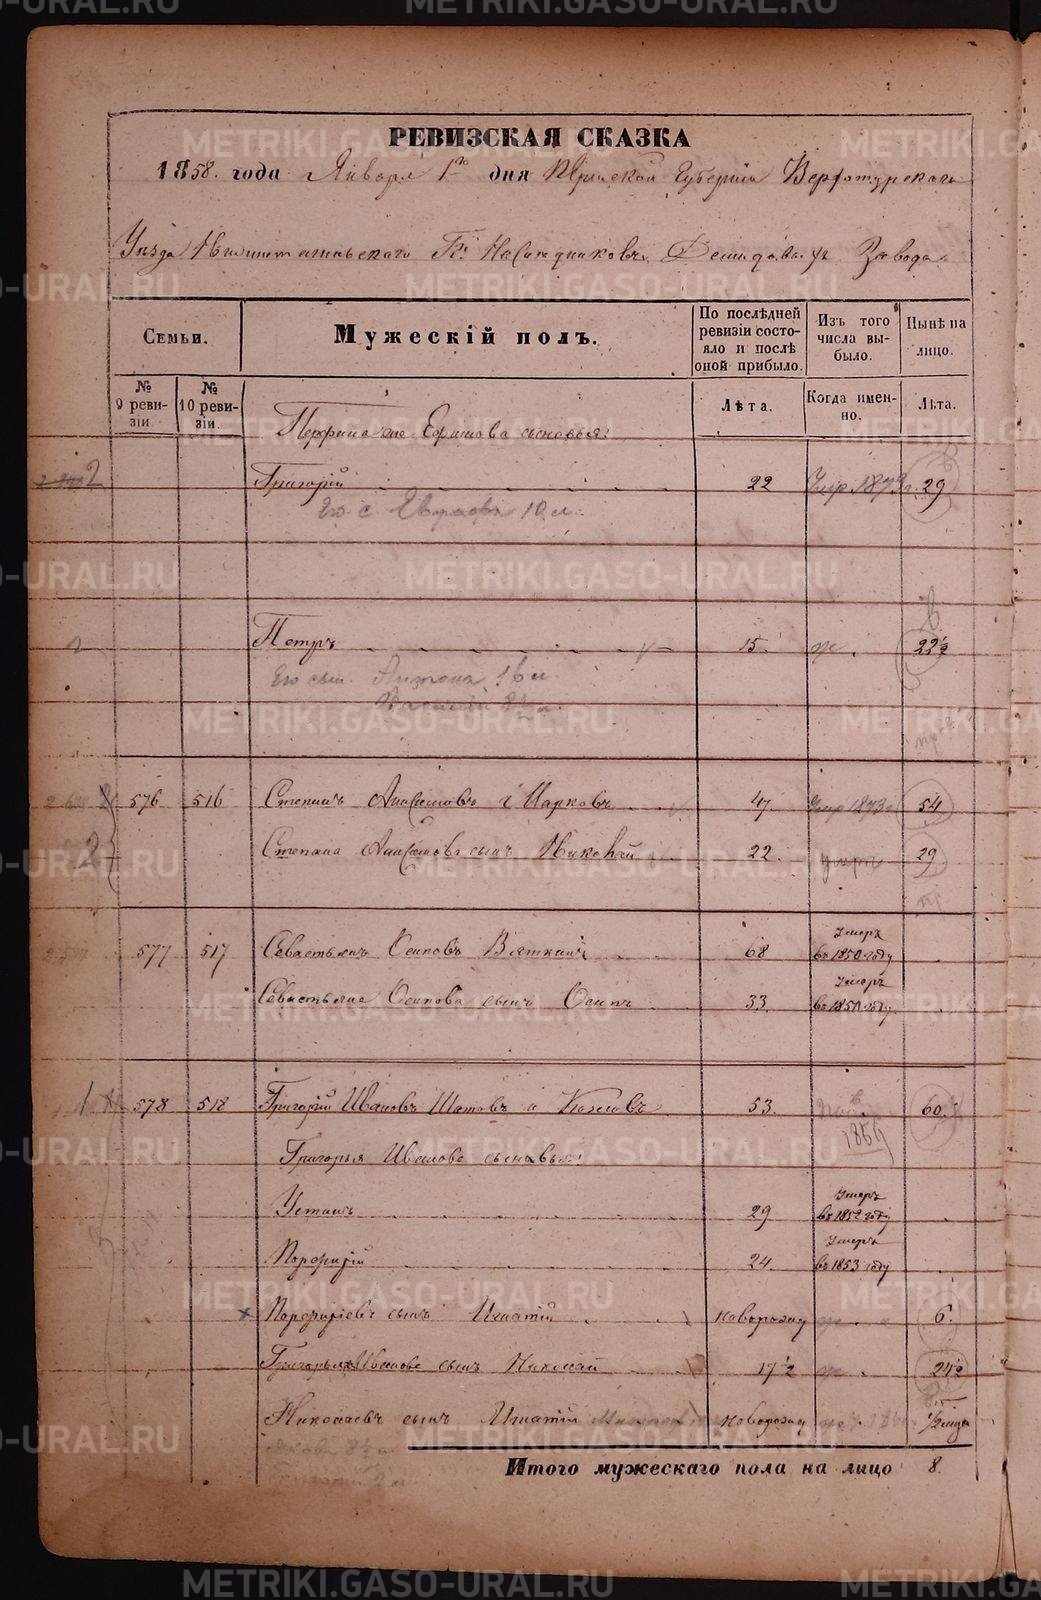 РЕВИЗСКАЯ СКАЗКА
1858 года Января 1го дня Пермской Губернiи Верхотурскаго
Уѣзда Нижнетагильскаго Гг. Наслѣдниковъ Демидовыхъ Завода
Семьи.
Мужескiй полъ.
По послѣдней ревизiи состояло и послѣ оной прибыло.
Изъ того числа выбыло.
Нынѣ на лицо.
№ 9 ревизiи
№ 10 ревизiи.
Лѣта.
Когда именно.
Лѣта.
Ефимова сыновья:
Григорiй 22 29
Его с 10 л.
Петръ 15 22½
Его сын.
576 516 Степанъ Анисимовъ Марковъ 47 Умер 1873 54
Степана Анисимова сынъ Николай 22 умеръ 29
577 517 Севастьянъ Осиповъ Вяткинъ 68 Умеръ въ 1850 году
Севастьяна Осипова сынъ Осипъ 33 Умеръ въ 1850 году
1 578 518 Григорiй Ивановъ Шатовъ и Козловъ 53 60
1859
Григорья Иванова сыновья:
Устинъ 29 Умеръ въ 1852 году
Порфирiй 24 Умеръ въ 1853 году
Порфирiевъ сынъ Игнатiй новорожд 6
Григорья Иванова сынъ Николай 17½ 24½
Николаевъ сынъ Игнатiй новорожд ½ года
Итого мужескаго пола на лицо 8.
METRIKI.GASO-URAL.RU